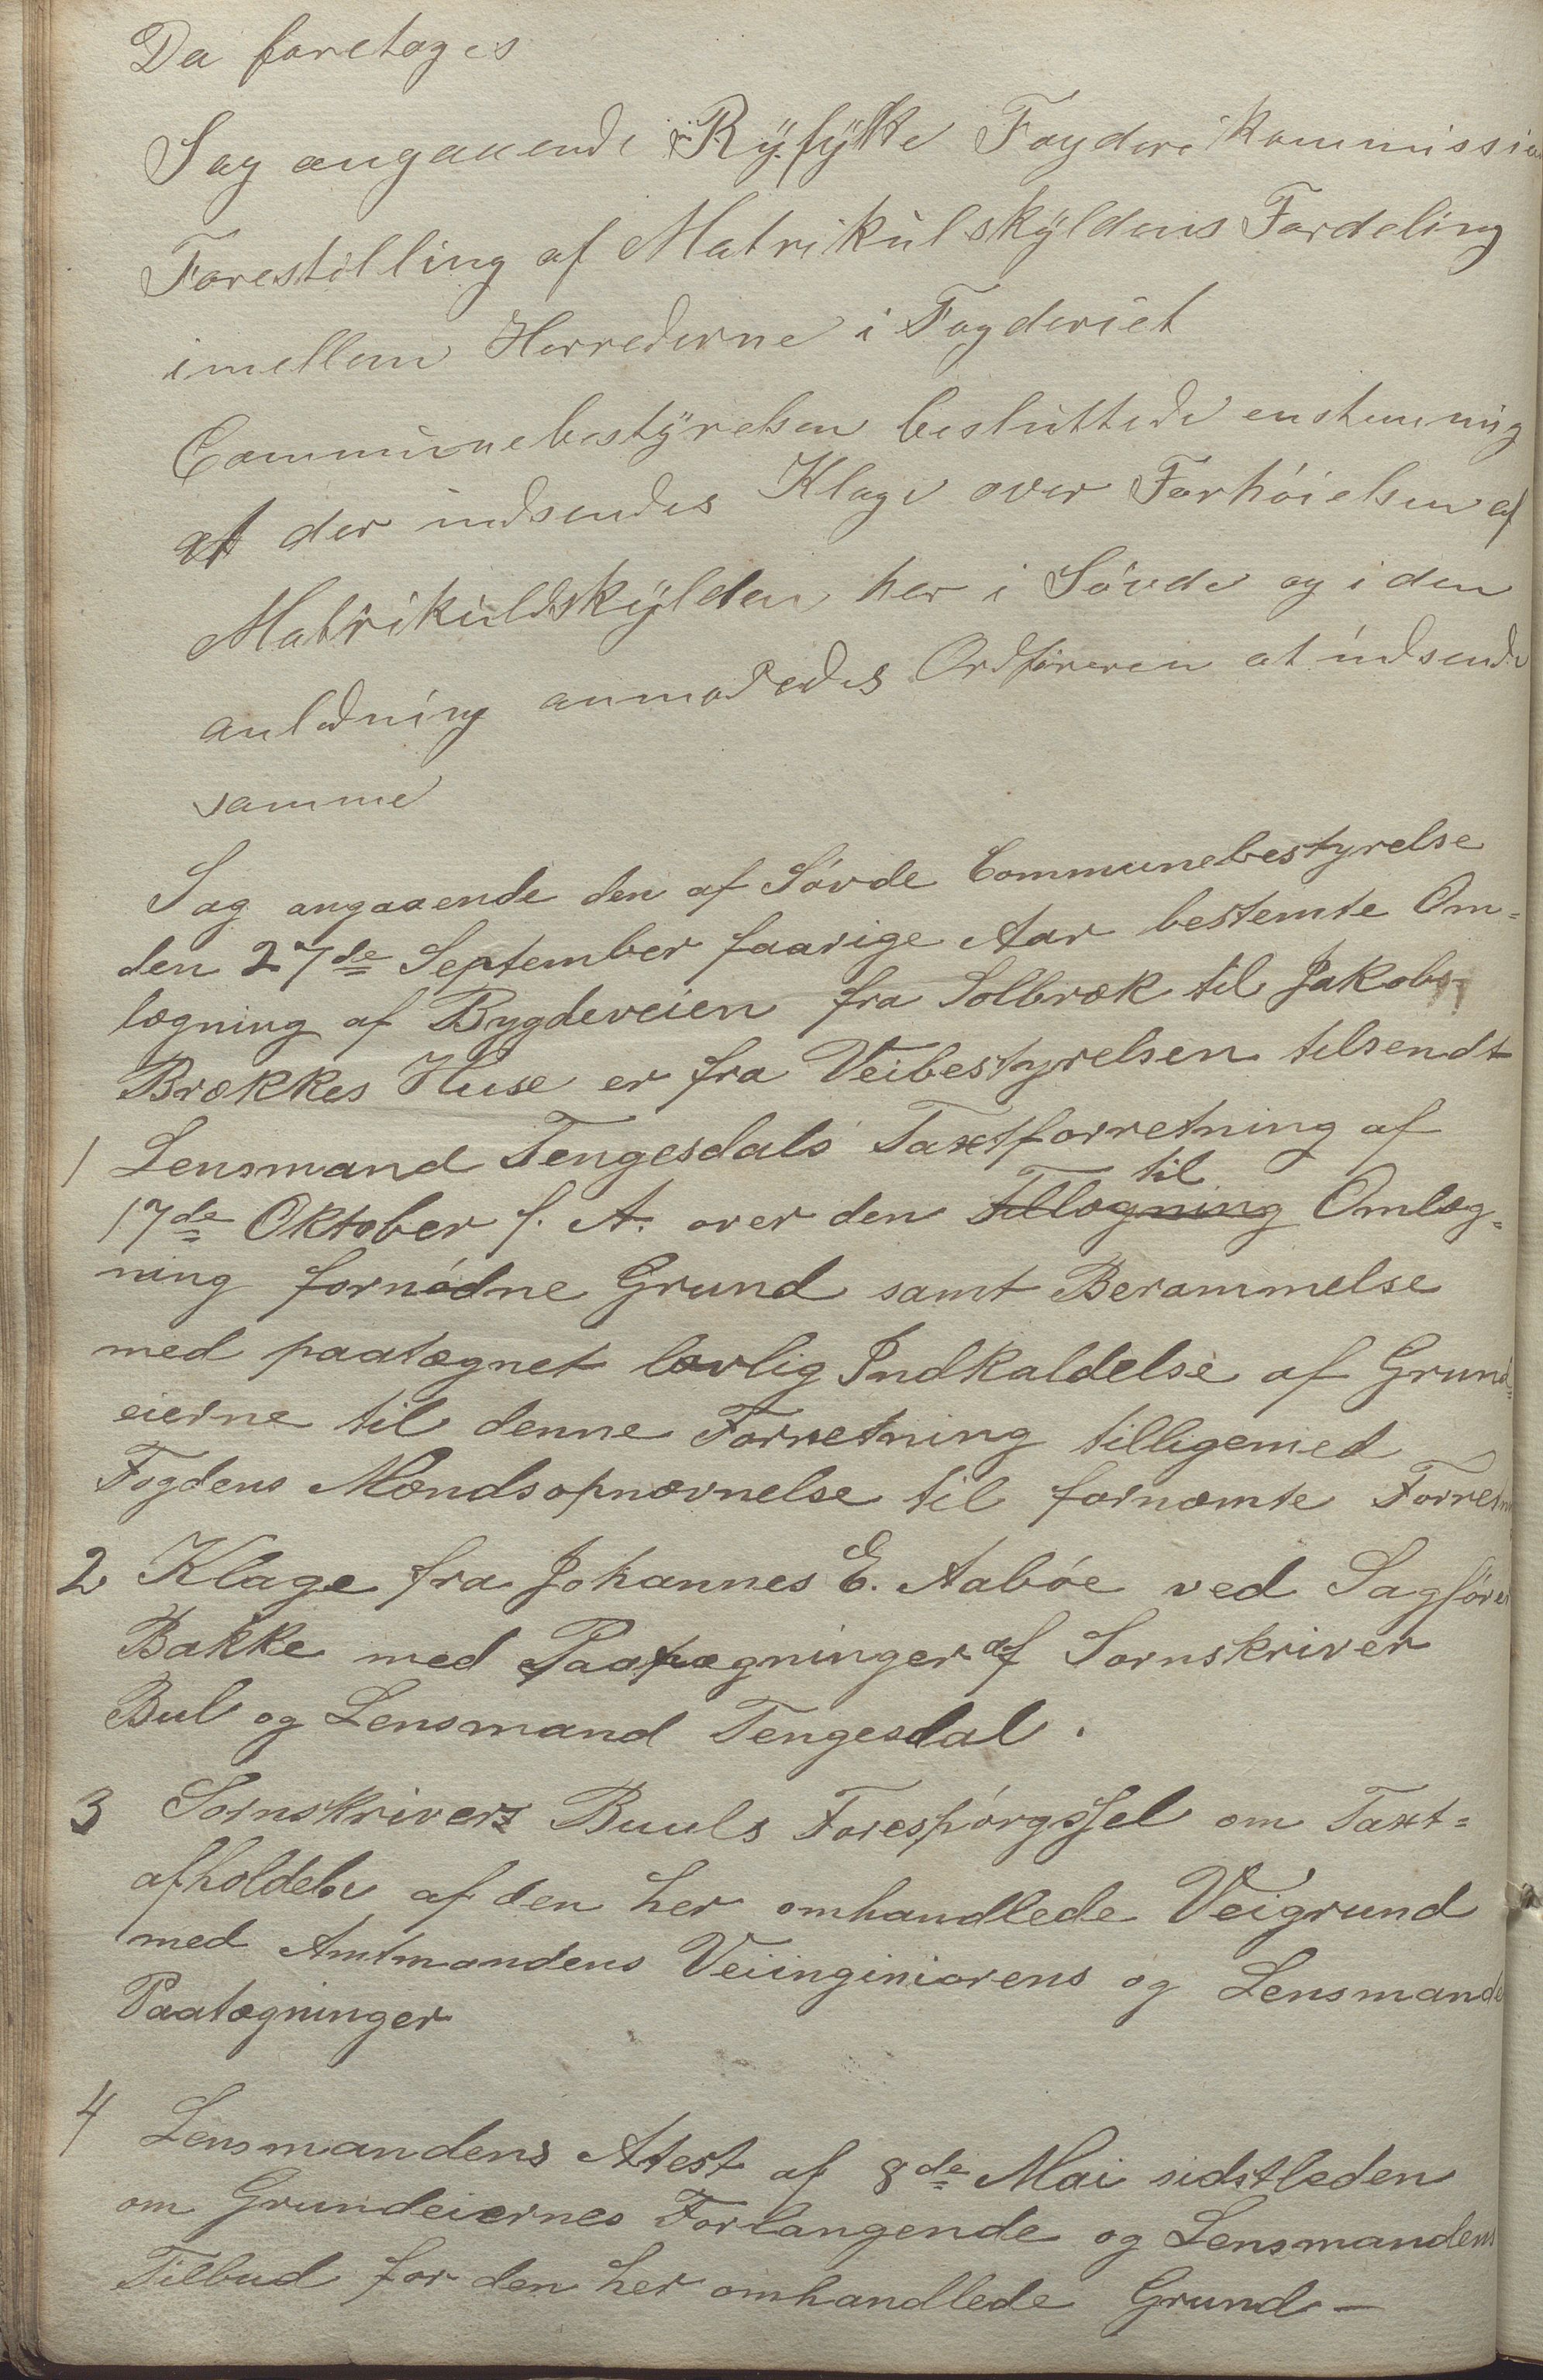 Da foretoges
Sag angaaende Ryfylke Fogderikommissio
Forestilling af Matrikulskyldens Fordeling
imellem Herrederne i Fogderiet
Communebestyrelsen besluttede enstemmig
at der indsendes Klage over Forhøielsen af
Matrikuldskylden her i Søvde og i den
anledning anmodedes Ordføreren at indsende
samme
Sag angaaende den af Søvde Communebestyrelse
den 27de September faarige Aar bestemte Om=
lægning af Bygdeveien fra Solbræk til Jakobs
Brækkes Huse er fra Veibestyrelsen tilsendt
1 Lensmand Tengesdals Taxtforretning af
til
17de Oktober f. A. over den Tillægning Omlæg=
ning fornødne Grund samt Berammelse
med paategnet lovlig Indkaldelse af Grund=
eierne til denne Forretning tilligemed
Fogdens Mændsopnævnelse til fornæmte Forretn
2 Klage fra Johannes E. Aabøe ved Sagfører
Bakke med Paategninger af Sornskriver
Bul og Lensmand Tengesdal.
3 Sornskriver Buuls Forespørgssel om Taxt=
afholdelse af den her omhandlede Veigrund
med Amtmandens Veiinginiørens og Lensmande
Paategninger
4 Lensmandens Atest af 8de Mai sidstleden
om Grundeiernes Forlangende og Lensmandens
Tilbud for den her omhandlede Grund —